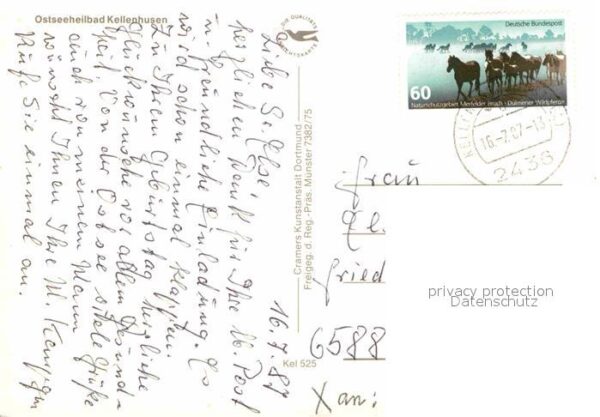 Ostseeheilbad Kellenhusen
DIE QUALITÄTS
Cramers Kunstanstalt Dortmund
Freigeg. d. Reg.-Präs. Münster 7382/75
Kel 525
16.7.87
herzlichen Dank für Ihre lb. Post
u. freundliche Einladung. Es
wird schon einmal klappen.
Zu Ihrem Geburtstag herzliche
Glückwünsche vor allem Gesund-
heit. Von der Ostsee viele Grüße
auch von meinem Mann
wünscht Ihnen Ihre M.
Rufe Sie einmal an.
Deutsche Bundespost
60
Naturschutzgebiet Merfelder Bruch - Dülmener Wildpferde
16.-7.87-13
2436
Frau
El.
Gried
6588
X an:
privacy protection
Datenschutz